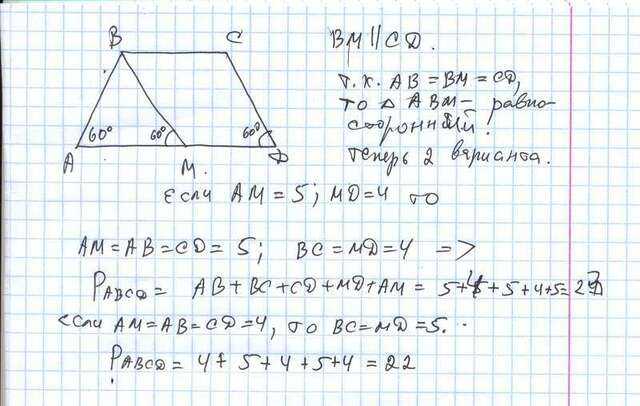 B C
BM || CD.
т.к. AB = BM = CD,
то △ ABM – равно-
сторонний!
Теперь 2 варианта.
60° 60° 60°
A M D
Если AM = 5; MD = 4 то
AM = AB = CD = 5; BC = MD = 4 =>
PABCD = AB + BC + CD + MD + AM = 5+4+5+4+5=23
если AM = AB = CD = 4, то BC = MD = 5.
PABCD = 4 + 5 + 4 + 5 + 4 = 22